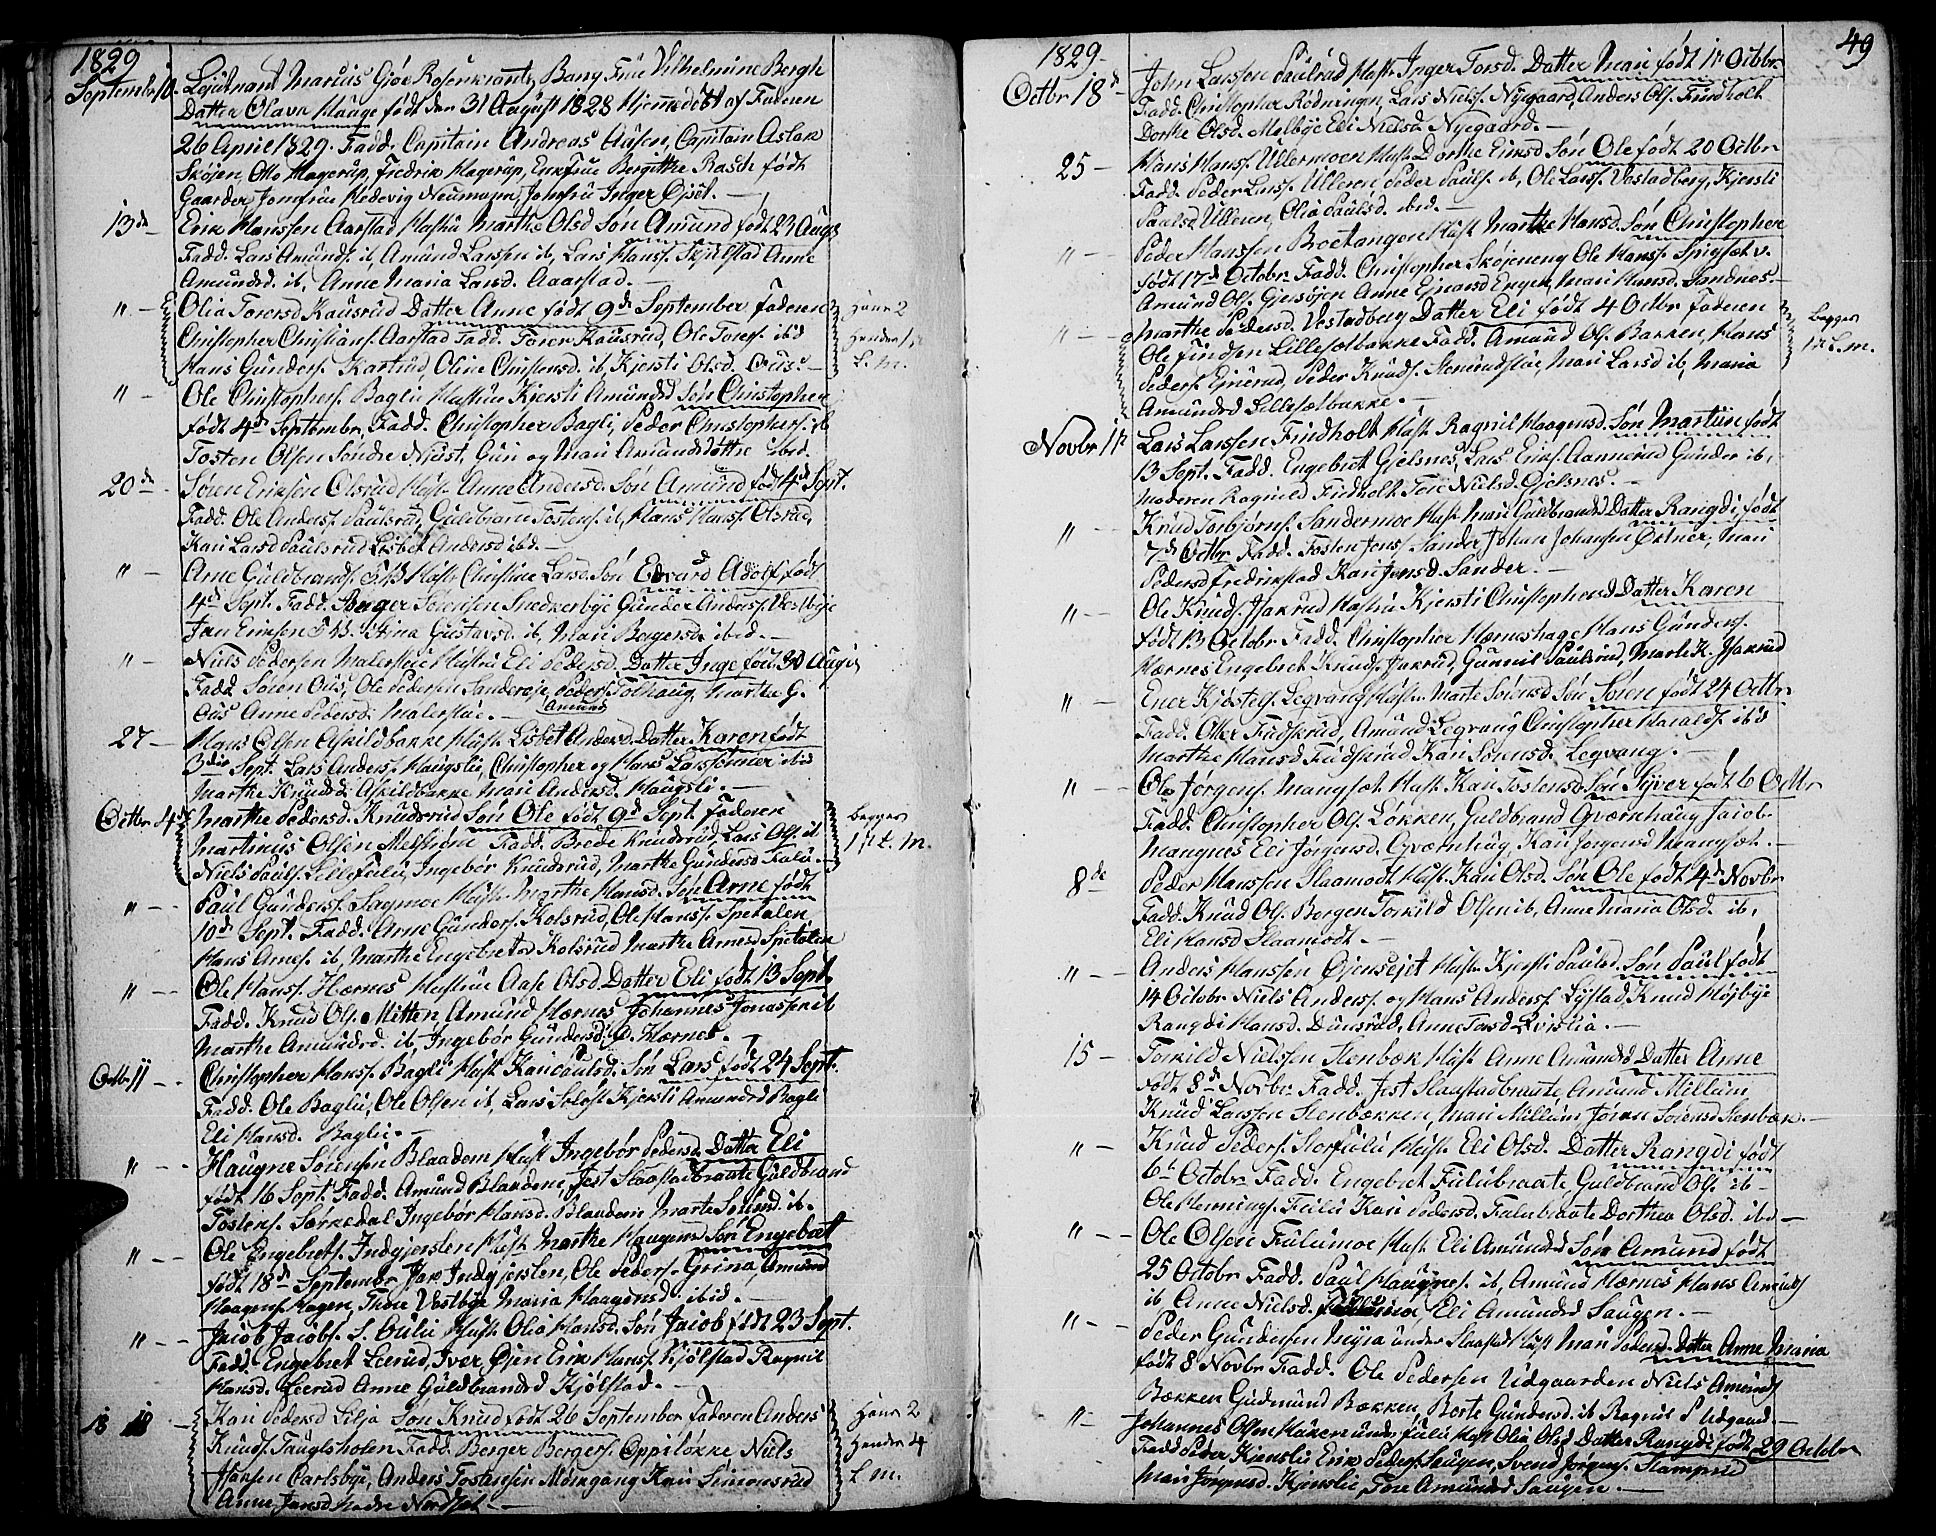 1829
Septembr 10. Lieutnant Marius Giöe Rosenkrantz Bang Frue Vilhelmine Bergh
Datter Olava Hauge født den 31 August 1828 Hjemmedøbt af Faderen
26 April 1829. Fadd. Capitain Andreas Aasen, Capitain Aslak
Skøjen, Otto Hagerup, Fredrik Hagerup, Enkefrue Bergitte Rasch født
Gaarder Jomfrue Hedevig Neumann, Jomfru Inger Øjset. —
13de — Erik Hanssen Aarstad Hustru Marthe Olsd Søn Amund født 23 Augs
Fadd. Lars Amunds. ib, Amund Larssen ib, Lars Hans. Skjelstad Anne
Amundsd. ib, Anne Maria Larsd. Aaarstad. —
" — Olia Toresd Kausrud Datter Anne født 9de September Faderen
Christopher Christians. Aarstad Fadd. Torer Kausrud, Ole Tores. ibid
Hans Gunders. Kartrud, Oline Chrisensd. ib, Kjersti Olsd. Ous. —
Hans 2
Hendes 1ste
L. M.
" — Ole Christophers. Bagli Hustrue Kjersti Amundsd Søn Christopher
født 4de Septembr. Fadd. Christopher Bagli, Peder Christophers. ib
Tosten Olsen Søndre Niust, Guri og Mari Amundsdøttre ibid.
20de — Søren Eriksen Olsrud Hustr. Anne Andersd. Søn Amund fød 4de Sept.
Fadd. Ole Anders. Paulsrud, Guldbrand Tostens. ib, Hans Hans. Olsrud,
Kari Larsd Paulsrud Lisbet Andersd ibid. —
" — Arne Guldbrands. Hustr Christine Larsd. Søn Edvard Adolf, født
4de Sept. Fadd. Børger Sørensen Snedkerbye Gunder Anders. Vestbye
Jan Eriksen Stina Gustavsd. ib, Mari Bagersd. ibid. —
" — Niels Pedersen Malerstue Hustru Eli Pedersd. Datter Inge født 30 Augus
Fadd. Søren Ous, Ole Pedersen Sanderøje, Peders. Tolhaug, Marthe G.
Amund
Ous Anne Pedersd. Malerstue. —
27 — Hans Olsen Askildbakke Hustr. Lisbet Andersd. Datter Karen født
3die Sept. Lars Anders. Haugslie, Christopher og Hans Larssønner ibid
Marthe Knudsd. Askildbakke Mari Andersd. Haugsli. —
Octbr 4de Marthe Pedersd. Knudsrud Søn Ole født 9de Sept. Faderen
Martinus Olsen Fadd. Brede Knudsrud, Lars Ols. ib
Niels Pauls. Lillefulu, Ingebor Knudsrud, Marthe Gundersd Fulu. —
begges
1ste L. M.
" — Paul Gunders. Sagmoe Hustr. Marthe Hansd. Søn Arne født
10de Sept. Fadd. Arne Gunders. Kolsrud, Ole Hans. Spetalen,
Hans Arnes. ib, Marthe Engebretsd Kolsrud Marthe Arnesd Spetalen
" — Ole Hans. Hærnes Hustrue Aase Olsd. Datter Eli født 13 Sept.
Fadd. Knud Ols. Mitten Amund Hærnes Johannes Jonassen ib
Marthe Amundsd. ib, Ingebor Gundersd. Hærnes. —
Octbr 11 — Christopher Hans. Bagli Hustr Kari Paulsd. Søn Lars født 24 Sept.
Fadd. Ole Baglie, Ole Olsen ib, Lars Kjersti Amundsd Bagli
Eli Hansd. Baglie. —
" — Haugne Sørensen Blaadem Hustr Ingebor Pedersd. Datter Eli
født 16 Sept. Fadd. Amund Blaadene, Jest Slaastadbraate Guldbrand
Tostens. Sørkedal Ingebor Hansd. Blaadem Marte Sørensd ib.
" — Ole Engebrets. Indgjerslen Hustr Marthe Haagensd Søn Engebret
født 18de September Jan Indgjerslen, Ole Peders. Grina, Amund
Haagens. Hagen, Thore Vestbye Maria Haagensd. ibid. —
" — Jacob Jacobs. S. Oulie Hustr. Olia Hansd. Søn Jacob født 23 Sept.
Fadd. Engebret Leerud, Iver Øjen Erik Hans. Kjølstad Ragnil
Hansd. Leerud Anne Guldbrandsd Kjølstad. —
18 — Kari Pedersd Lilja Søn Knud født 26 September Faderen Anders
Knuds. Fadd. Berger Bergers. Oppiløkke Niels
Hansen Carlsbye, Anders Tostensen Mømgang Kari Simonsrud
Anne Jansd. —
Hans 2
Hendes 4
L. M.
1829 49
Octbr 18de — John Larssen Paulrud Hustr. Inger Torsd. Datter Mari født 1ste Octbr
Fadd. Christopher Rødningen, Lars Niels. Nyegaard, Anders Ols. Findholt
Dorthe Olsd. Melbye Eli Nielsd. Nyegaard. —
25 — Hans Hans. Ullermoen Hustr. Dorthe Eriksd Søn Ole født 20 Octbr
Fadd. Peder Lars. Ulleren Peder Pauls. ib, Ole Lars. Vestadberg, Kjersti
Paulsd Ulleren, Olia Paulsd. ibid. —
" — Peder Hanssen Boetangen Hust Marthe Hansd. Søn Christopher
født 17de Octobr. Fadd. Christopher Skøjeneng Ole Hans. Spigset v.
Amund Ols. Gjersøjen Anne Ejnarsd Engen, Mari Hansd. Sandnes. —
" — Marthe Pedersd. Vestadberg Datter Eli født 4 Octbr Faderen
Ole Findsen Lillesætbakke Fadd. Amund Ols. Bakken, Hans
Peders. Ejnerud, Peder Knuds. Stenrudstue, Mari Larsd ib, Maria
Amundsd Lillesætbakke. —
begges
1ste L. M.
Novbr 1ste Lars Larssen Findholt Hustr. Ragnil Haagensd. Søn Martin født
13 Sept. Fadd. Engebret Gjelsnes, Lars Eriks. Aannerud Gunder ib,
Moderen Ragnild Findholt Tore Nielsd. Gjelsnes. —
" — Knud Torbjørns. Sandermoe Hustr Mari Guldbrandsd Datter Rangdi født
7de Octbr. Fadd. Tosten Jens. Sander, Johan Johansen Østner, Mari
Pedersd Fredrikstad Kari Jensd. Sander. —
" — Ole Knuds. Hakrud Hustru Kjersti Christophersd Datter Karen
født 13 Octobr. Fadd. Christopher Hærneshage Hans Gunders.
Hærnes Engebret Knuds. Hakrud, Gunnil Paulsrud, Mart. K. Hakrud
" — Ener Kjøsteg. Legvang Hustr. Marte Sørensd Søn Søren født 24 Octbr
Fadd. Otter Fudskrud, Amund Legvang Christopher Haralds. ibid
Marthe Hansd Fudskrud Kari Sørensd. Legvang. —
" — Ole Jørgens. Mangset Hustr. Kari Tostensd Søn Syver født 6 Octbr
Fadd. Christopher Ols. Løkken, Guldbrand Qværnhaug Jacob
Mangnes Eli Jørgensd. Qværnhug, Kari Jørgensd Mangset. —
8de — Peder Hanssen Slaamodt Hustr. Kari Olsd. Søn Ole født 4de Novbr
Fadd. Knud Ols. Borgen Torkild Olsen ib, Anne Maria Olsd. ib,
Eli Hansd Slaamodt. —
" — Anders Hanssen Øjensejet Hustr. Kjersti Paulsd. Søn Paul født
14 Octobr. Niels Anders. og Hans Anders. Lystad, Knud Højbye
Rangdi Hansd. Dunsrud, Anne Torsd. Lvislia. —
15 — Torkild Nielsen Stenbæk Hust Anne Amundsd Datter Anne
født 8de Novbr. Fadd. Jest Slaastadbraate, Amund Millum
Knud Larssen Stenbækken, Mari Millum, Jøran Sørensd Stenbæk. —
" — Knud Peders. Storfulu Hustr. Eli Olsd. Datter Rangdi født
6te Octobr. Fadd. Engebret Fulubraate Guldbrand Ols. ib.
Ole Hennings. Fulu Kari Pedersd. Fulubraate Dorthea Olsd. ibid —
" — Ole Olsen Fulumoe Hust. Eli Amundsd Søn Amund født
25 Octobr. Fadd. Paul Haugnes. ib, Amund Hærnes Hans Amunds.
ib, Anne Nielsd. Eli Amundsd Saugen. —
" — Peder Gundersen Myra under Slaastad Hustr Mari Pedersd. Datter Anne Maria
født 8 Novbr. Fadd. Ole Pedersen Udgaarden Niels Amunds.
Bækken Gudmund Bækken, Borte Gundersd. ib Ragnil P. Udgaard. —
" — Johannes Olsen Haker under Fulu Hust Olia Olsd. Datter Rangdi født 29 Octobr
Fadd. Peder Kjenslie Erik Peders. Saugen, Svend Jørgens. Stamprud
Mari Jørgensd. Kjenslie, Tore Amundsd Saugen. —